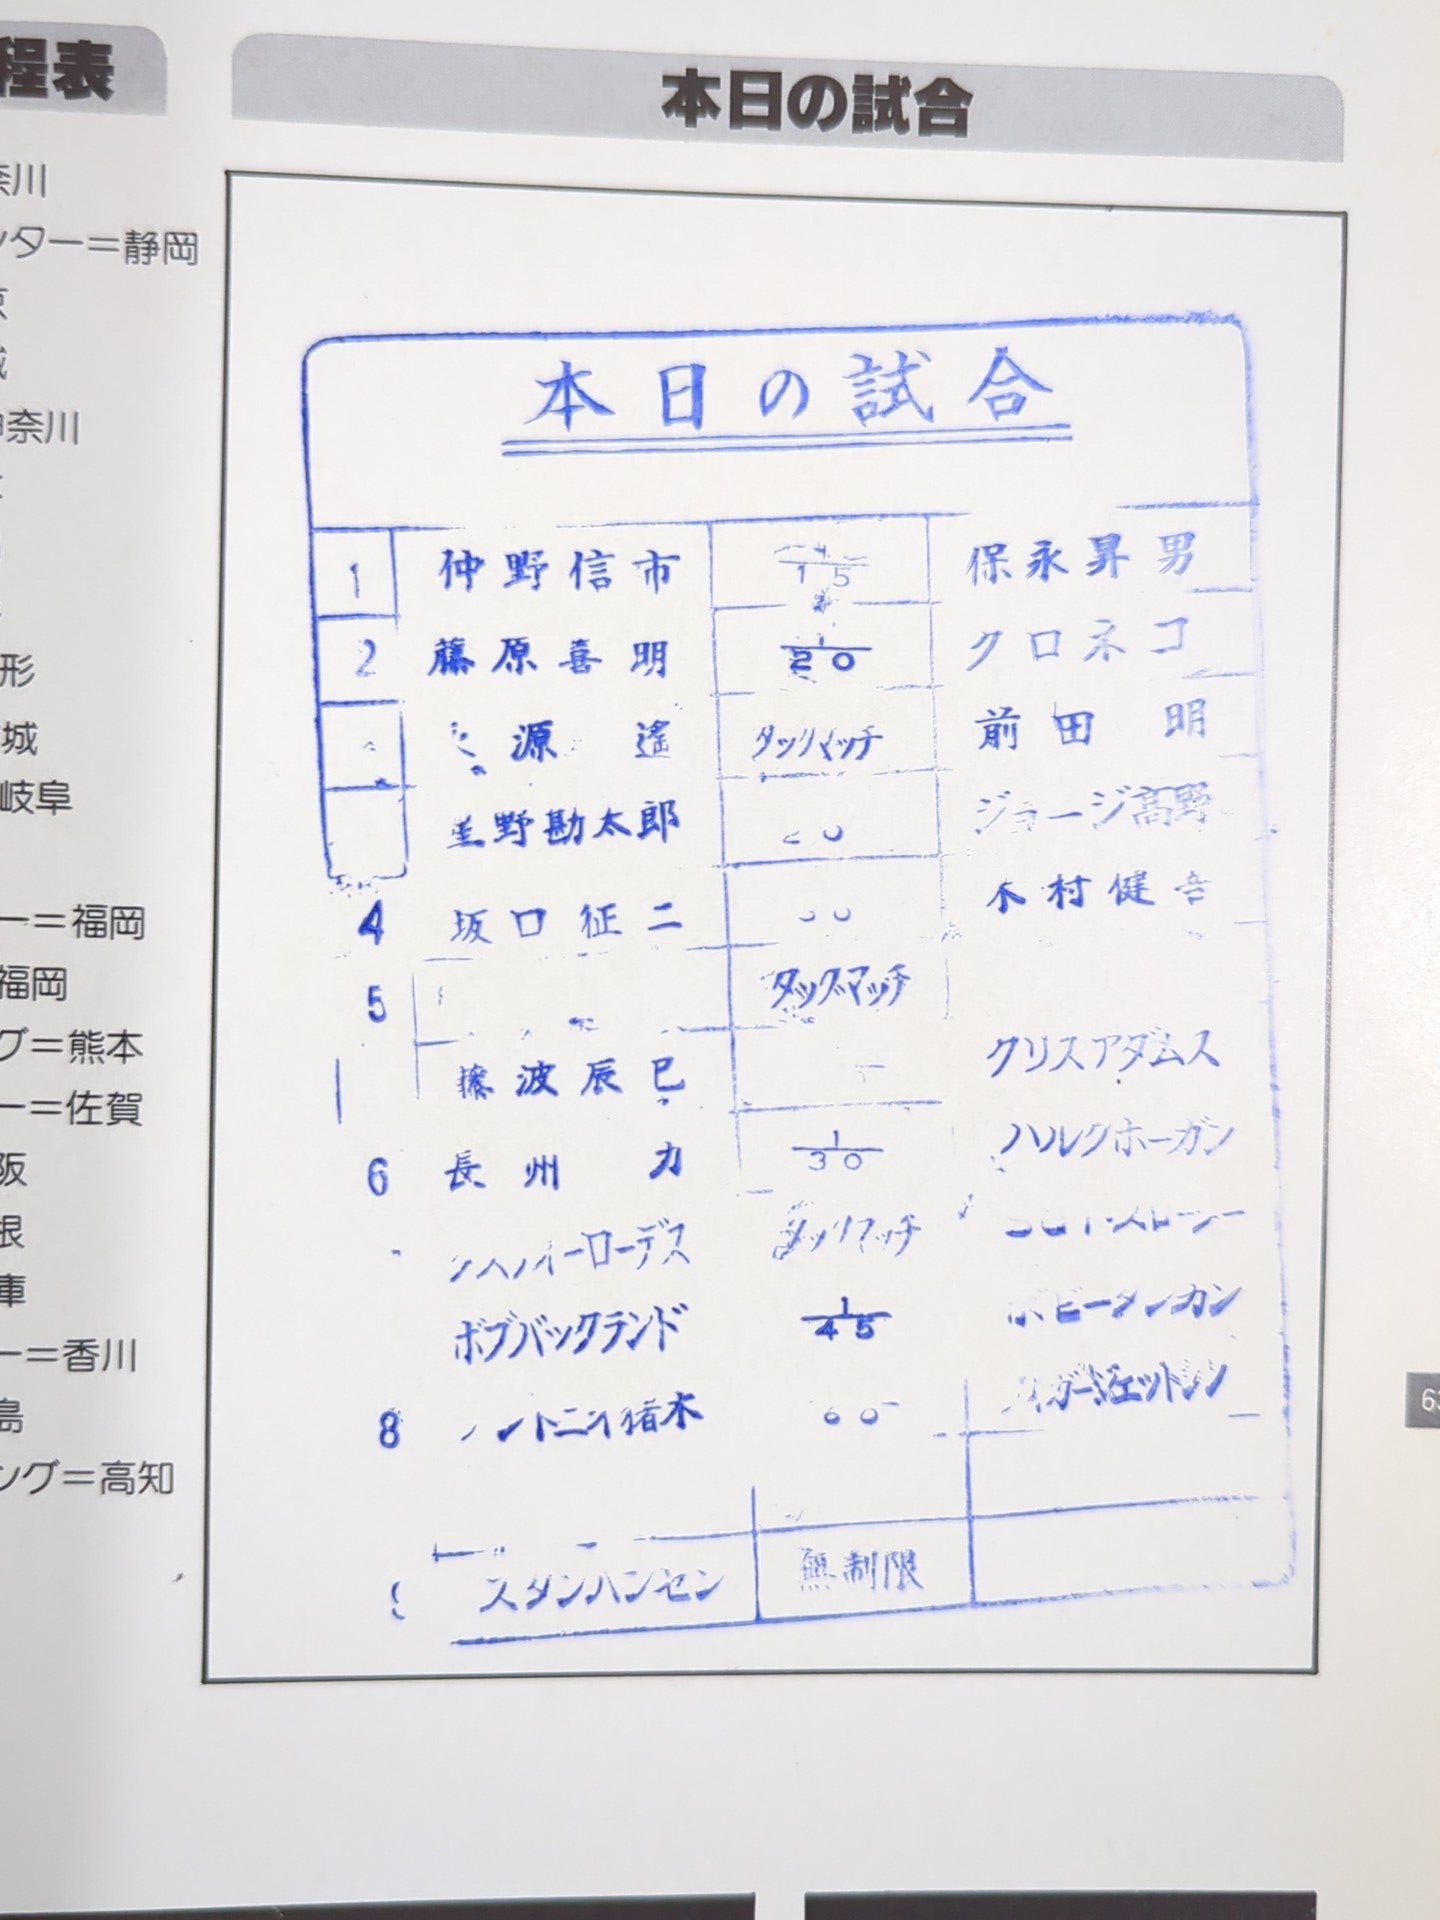 程表
奈川
ンター＝静岡
神奈川
形
城
岐阜
ー＝福岡
福岡
グ＝熊本
ー＝佐賀
阪
根
庫
ー＝香川
島
ング＝高知
本日の試合
本日の試合
1 仲野信市 1/15 保永昇男
2 藤原喜明 1/20 クロネコ
源 遙 タッグマッチ 前田 明
星野勘太郎 ジョージ高野
4 坂口征二 木村健吾
5 タッグマッチ
藤波辰巳 クリスアダムス
6 長州 力 1/30 ハルクホーガン
ローデス タッグマッチ
ボブバックランド 1/45 ボビーダンカン
8 アントニオ猪木 60 タイガージェットシン
スタンハンセン 無制限
63